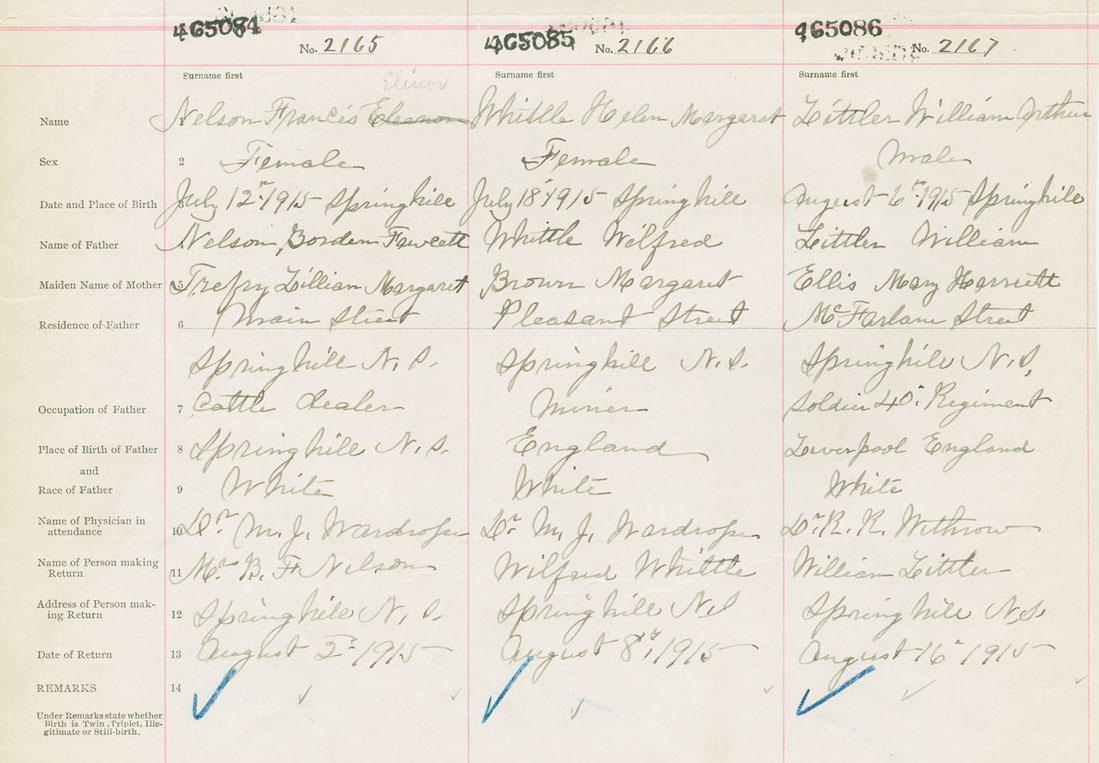 465084 465085 465086
No. 2165 No. 2166 No. 2167
Surname first Surname first Surname first
Elinor
Name Nelson Francis Eleanor Whittle Helen Margaret Littler William Arthur
Sex 2 Female Female Male
Date and Place of Birth July 12th 1915 Springhill July 18th 1915 Springhill August 6th 1915 Springhill
Name of Father Nelson, Borden Fawcett Whittle Wilfred Littler William
Maiden Name of Mother 5 Trefry Lillian Margaret Brown Margaret Ellis Mary Harriett
Residence of Father 6 Main Street Pleasant Street McFarlane Street
Springhill N.S. Springhill N.S. Springhill N.S.
Occupation of Father 7 Cattle dealer Miner Soldier 40th Regiment
Place of Birth of Father 8 Springhill N.S. England Liverpool England
and
Race of Father 9 White White White
Name of Physician in
attendance 10 Dr. M. J. Wardrope Dr. M. J. Wardrope Dr. R. R. Withrow
Name of Person making
Return 11 B. F. Nelson Wilfred Whittle William Littler
Address of Person mak-
ing Return 12 Springhill N.S. Springhill N.S Springhill N.S.
Date of Return 13 August 2nd 1915 August 8th 1915 August 16th 1915
REMARKS 14
Under Remarks state whether
Birth is Twin, Triplet, Ille-
gitimate or Still-birth.